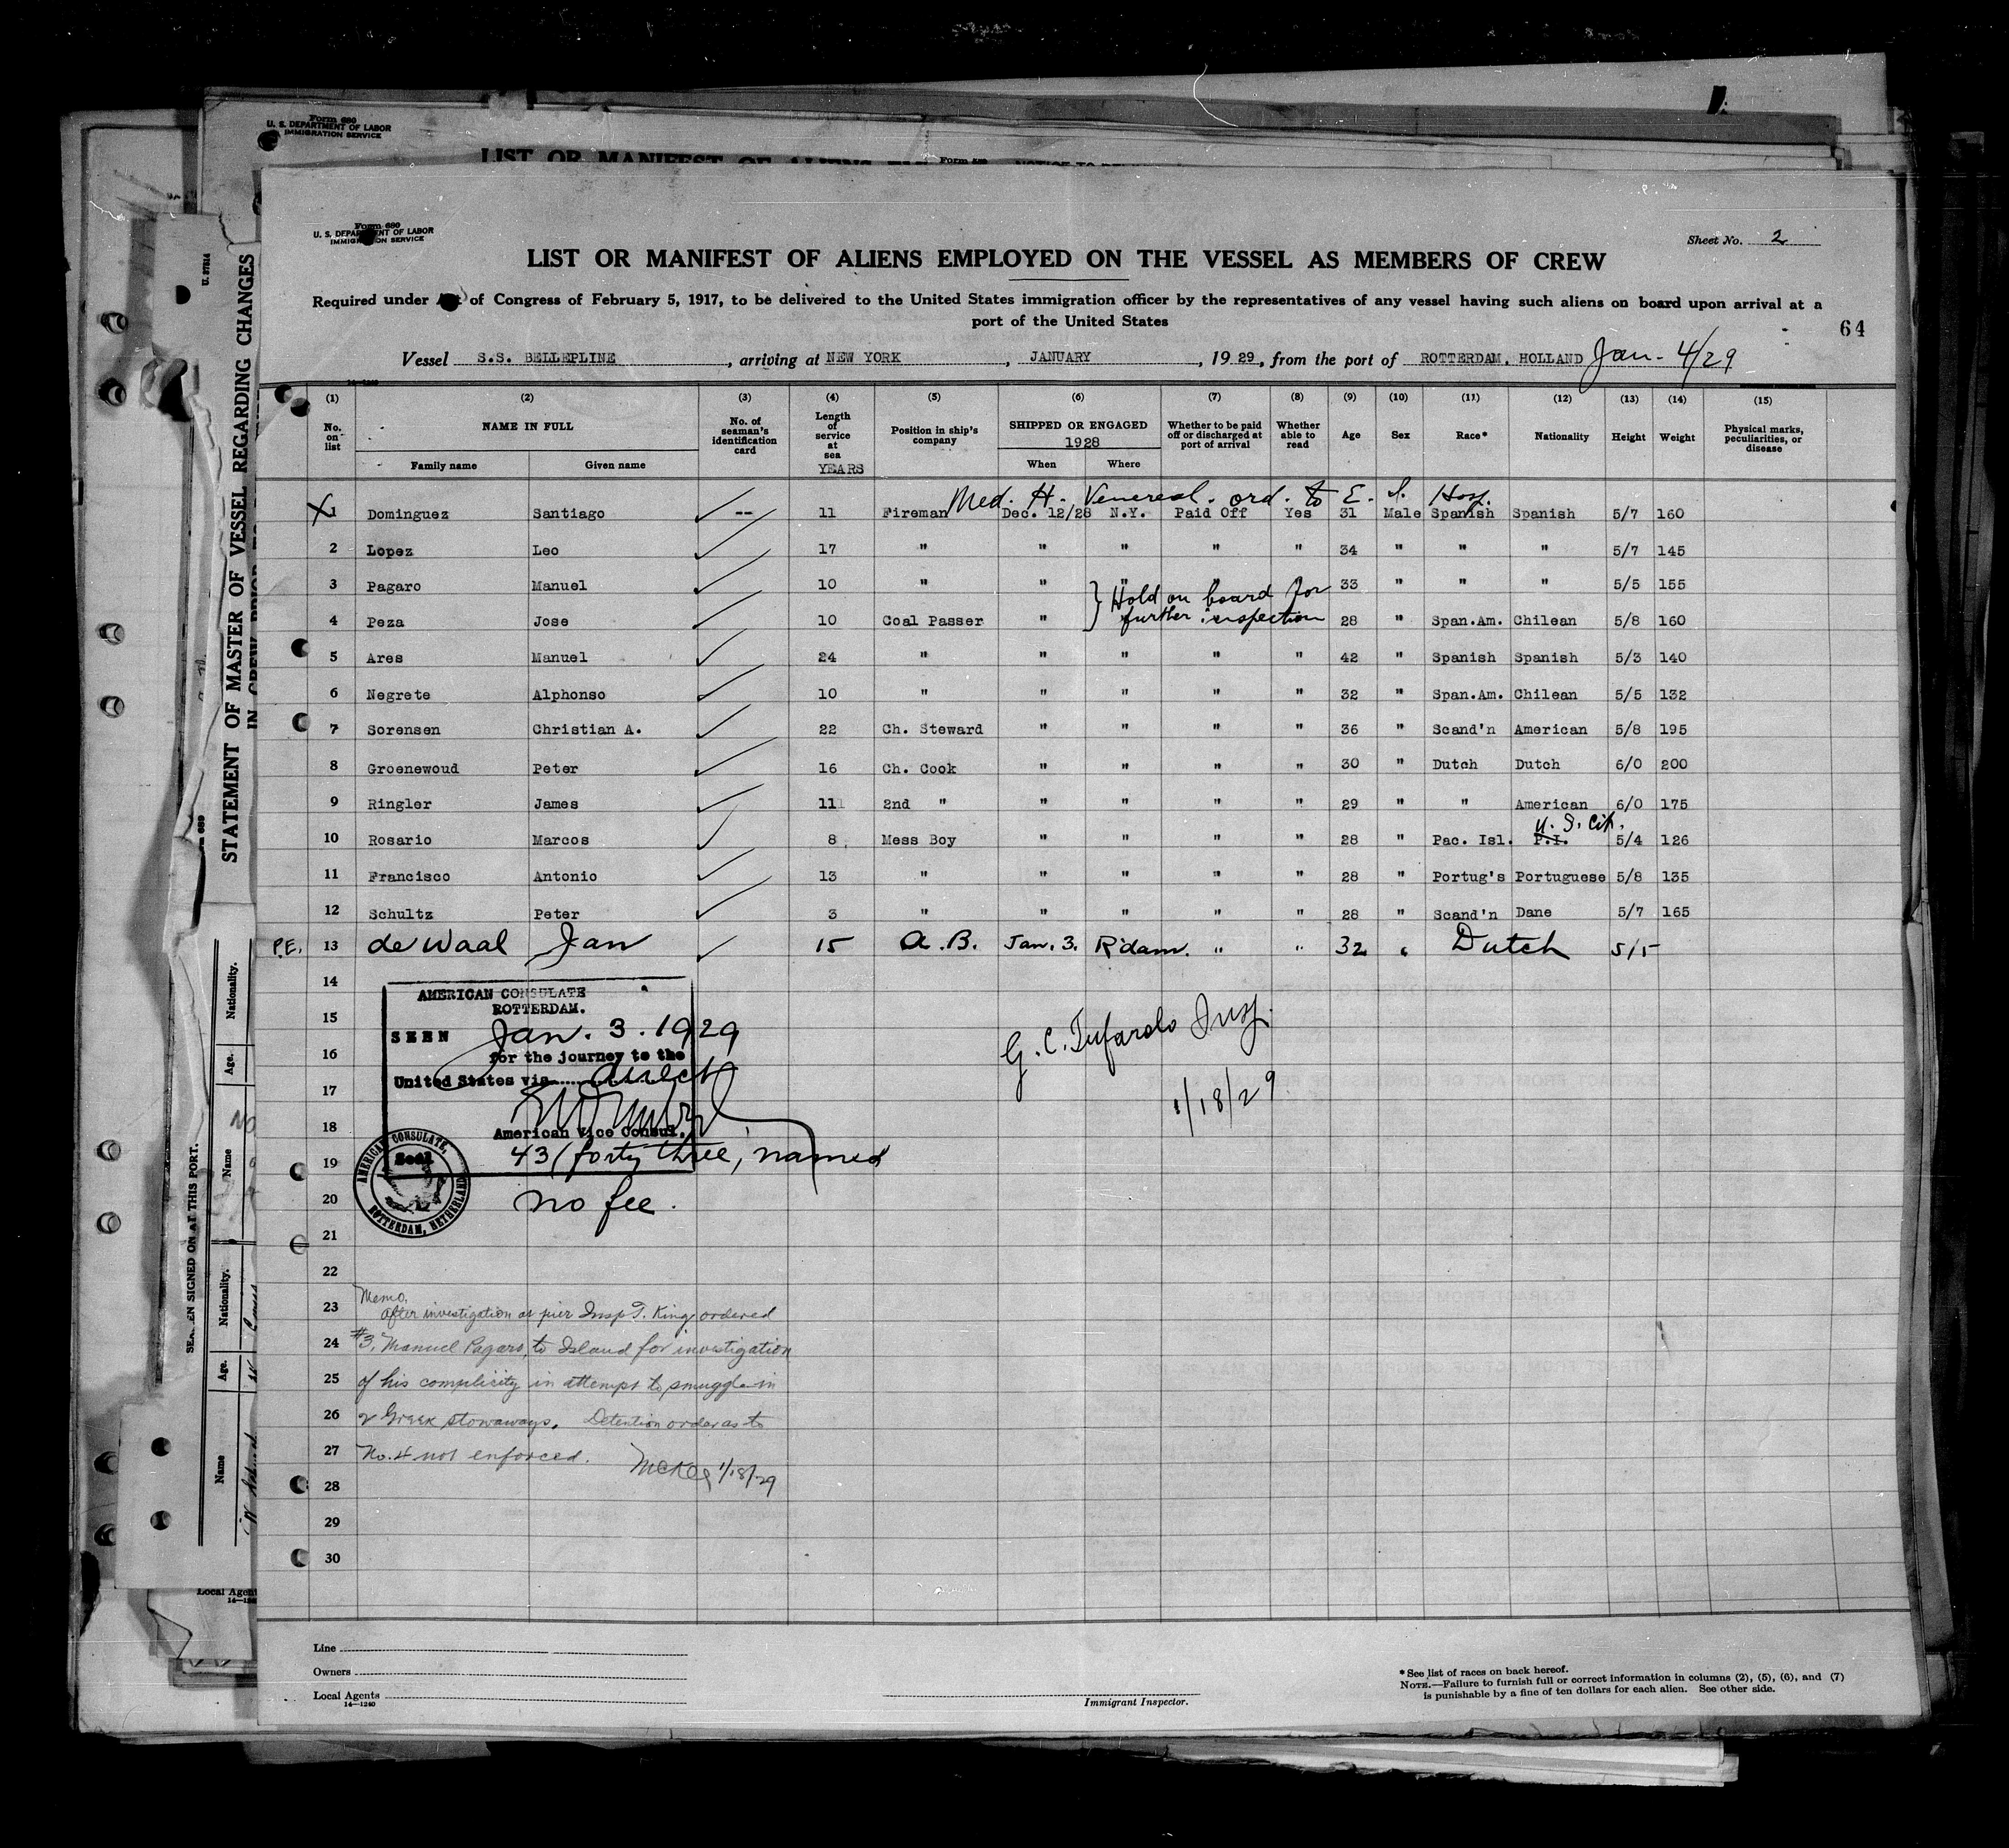 Form 680
U. S. DEPARTMENT OF LABOR
IMMIGRATION SERVICE
LIST OR MANIFEST OF ALIENS
Form 680
U. S. DEPARTMENT OF LABOR
IMMIGRATION SERVICE
Sheet No. 2
LIST OR MANIFEST OF ALIENS EMPLOYED ON THE VESSEL AS MEMBERS OF CREW
Required under Act of Congress of February 5, 1917, to be delivered to the United States immigration officer by the representatives of any vessel having such aliens on board upon arrival at a
port of the United States
64
Vessel S.S. BELLEPLINE, arriving at NEW YORK, JANUARY, 1929, from the port of ROTTERDAM, HOLLAND Jan - 4/29
14-1240
(1) (2) (3) (4) (5) (6) (7) (8) (9) (10) (11) (12) (13) (14) (15)
No. on list
NAME IN FULL
Family name Given name
No. of seaman's identification card
Length of service at sea YEARS
Position in ship's company
SHIPPED OR ENGAGED 1928
When Where
Whether to be paid off or discharged at port of arrival
Whether able to read
Age Sex Race* Nationality Height Weight
Physical marks, peculiarities, or disease
Med. H. Venereal. ord. to E. I. Hosp.
X1 Dominguez Santiago -- 11 Fireman Dec. 12/28 N.Y. Paid Off Yes 31 Male Spanish Spanish 5/7 160
2 Lopez Leo 17 " " " " " 34 " " " 5/7 145
3 Pagaro Manuel 10 " " " 33 " " " 5/5 155
} Hold on board for
further inspection
4 Peza Jose 10 Coal Passer " 28 " Span.Am. Chilean 5/8 160
5 Ares Manuel 24 " " " " " 42 " Spanish Spanish 5/3 140
6 Negrete Alphonso 10 " " " " " 32 " Span.Am. Chilean 5/5 132
7 Sorensen Christian A. 22 Ch. Steward " " " " 36 " Scand'n American 5/8 195
8 Groenewoud Peter 16 Ch. Cook " " " " 30 " Dutch Dutch 6/0 200
9 Ringler James 11 2nd " " " " " 29 " " American 6/0 175
U. S. Cit.
10 Rosario Marcos 8 Mess Boy " " " " 28 " Pac. Isl. P.I. 5/4 126
11 Francisco Antonio 13 " " " " " 28 " Portug's Portuguese 5/8 135
12 Schultz Peter 3 " " " " " 28 " Scand'n Dane 5/7 165
P.E. 13 de Waal Jan 15 A.B. Jan. 3. R'dam. " " 32 " Dutch 5/5
14
15
16
17
18
19
20
21
22
23
24
25
26
27
28
29
30
AMERICAN CONSULATE
ROTTERDAM.
SEEN Jan. 3. 1929
for the journey to the
United States via direct
American Vice Consul.
43 (forty three) named
no fee.
AMERICAN CONSULATE,
Seal
ROTTERDAM, NETHERLAND
G. C. Tufarolo Insp.
1/18/29
Memo.
After investigation at pier Insp T. King ordered
#3, Manuel Pagaro, to Island for investigation
of his complicity in attempt to smuggle in
2 Greek stowaways. Detention order as to
No. 4 not enforced.
McKee 1/18/29
Line
Owners
Local Agents
14-1240
Immigrant Inspector.
* See list of races on back hereof.
NOTE.—Failure to furnish full or correct information in columns (2), (5), (6), and (7)
is punishable by a fine of ten dollars for each alien. See other side.
STATEMENT OF MASTER OF VESSEL REGARDING CHANGES
SEAMEN SIGNED ON AT THIS PORT.
Nationality.
Age.
Name
Nationality.
Age.
Name
Local Agent